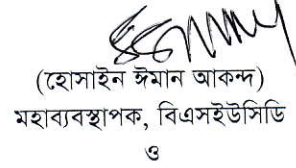 (হোসাইন ঈমান আকন্দ)
মহাব্যবস্থাপক, বিএসইউসিডি
ও